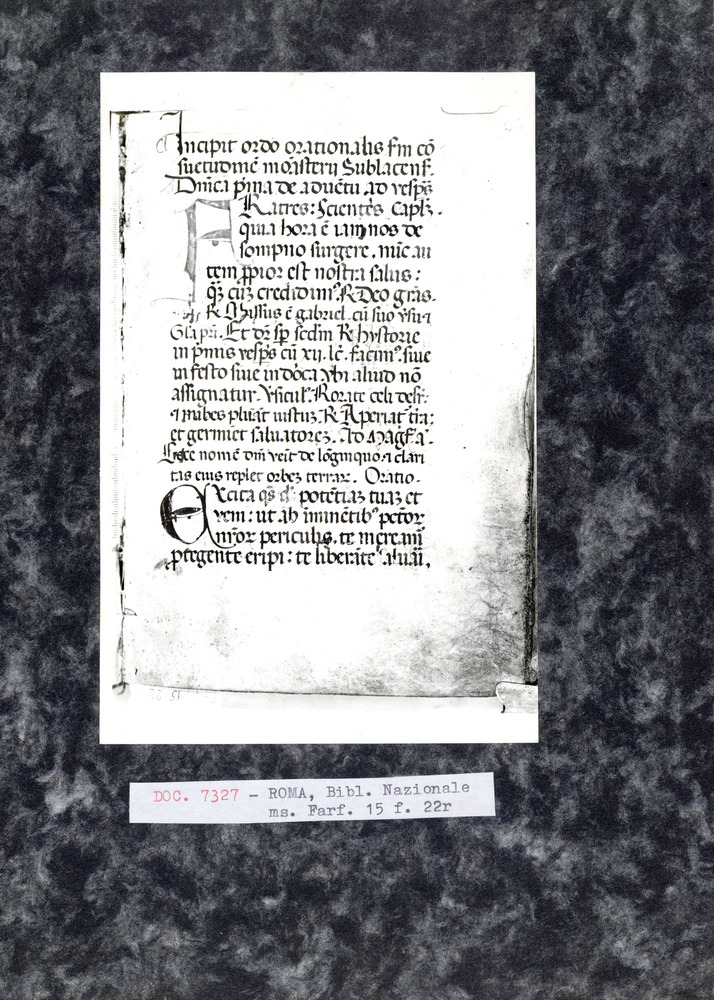 Incipit ordo orationalis ſm cō
ſuetudinē mōasterij Sublacenſ.
Dn̄ica p̄ma de aduētu ad vesp̄s
FRatres: Scientes Capl̄.
quia hora ē iam nos de
sompno surgere. nūc au
tem ꝓpior est nostra salus:
qꝫ cuꝫ credidimꝰ. ℟ Deo gr̄as.
℟ Missus ē gabriel. cū suo ℣su ⁊
Gl̄a pr̄i. Et dr̄ sp̄ scd̄m ℟ hystorie
in p̄mis vesp̄s cū xij. lē. facimꝰ. siue
in festo siue in dōca vbi aliud nō
assignatur. ℣sicul̄. Rorate celi desr̄.
⁊ nubes pluāt iustuꝫ. ℟ Aperiat tr̄a:
et germīet saluatoreꝫ. Ad Magf̄a.
Ecce nomē dn̄i veīt de lōginquo ⁊ clari
tas eius replet orbeꝫ terrar. Oratio.
EXcita qs̄ d̄. potētiaꝫ tuaꝫ et
veni: ut ab īminētibꝰ pctōr
nr̄or periculis. te mereamr̄
ꝓtegente eripi: te liberāte saluari.
DOC. 7327 - ROMA, Bibl. Nazionale
ms. Farf. 15 f. 22r